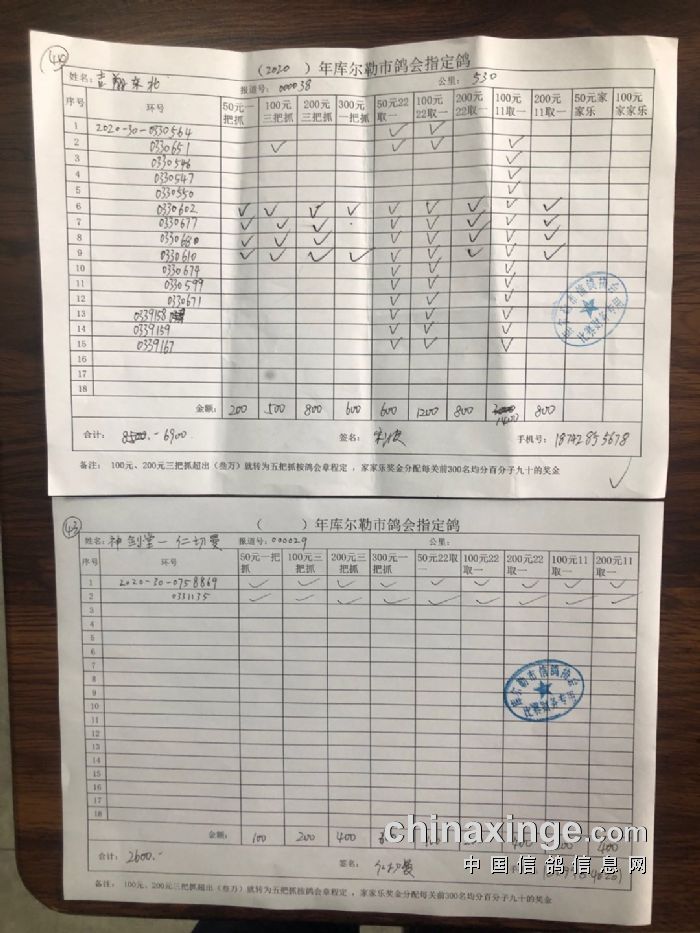 (2020 ) 年库尔勒市鸽会指定鸽
姓名: 报道号: 000038 公里: 530
序号 环号 50元一把抓 100元三把抓 200元三把抓 300元一把抓 50元22取一 100元22取一 200元22取一 100元11取一 200元11取一 50元家家乐 100元家家乐
1 2020-30-0330564 ✓ ✓
2 0330651 ✓ ✓ ✓ ✓
3 0330546 ✓
4 0330547 ✓
5 0330550 ✓
6 0330602 ✓ ✓ ✓ ✓ ✓ ✓ ✓ ✓ ✓
7 0330677 ✓ ✓ ✓ ✓ ✓ ✓ ✓ ✓
8 0330680 ✓ ✓ ✓ ✓ ✓ ✓ ✓ ✓
9 0330610 ✓ ✓ ✓ ✓ ✓ ✓ ✓ ✓ ✓
10 0330674 ✓ ✓ ✓
11 0330599 ✓ ✓ ✓
12 0330671 ✓ ✓ ✓
13 0339158 ✓ ✓ ✓
14 0339159 ✓ ✓ ✓
15 0339167 ✓ ✓ ✓
16
17
18
金额: 200 500 800 600 600 1200 800 1400 800
合计: 6900 签名: 手机号: 18742855678
备注: 100元、200元三把抓超出(叁万)就转为五把抓按鸽会章程定,家家乐奖金分配每关前300名均分百分子九十的奖金
43
( ) 年库尔勒市鸽会指定鸽
姓名: 神剑堂一仁切曼 报道号: 000029 公里:
序号 环号 50元一把抓 100元三把抓 200元三把抓 300元一把抓 50元22取一 100元22取一 200元22取一 100元11取一 200元11取一
1 2020-30-0758869 ✓ ✓ ✓ ✓ ✓ ✓ ✓ ✓ ✓
2 0331135 ✓ ✓ ✓ ✓ ✓ ✓ ✓ ✓ ✓
3
4
5
6
7
8
9
10
11
12
13
14
15
16
17
18
金额: 100 200 400
合计: 2600.- 签名: 仁切曼
备注: 100元、200元三把抓超出(叁万)就转为五把抓按鸽会章程定,家家乐奖金分配每关前300名均分百分子九十的奖金
chinaxinge.com
中国信鸽信息网